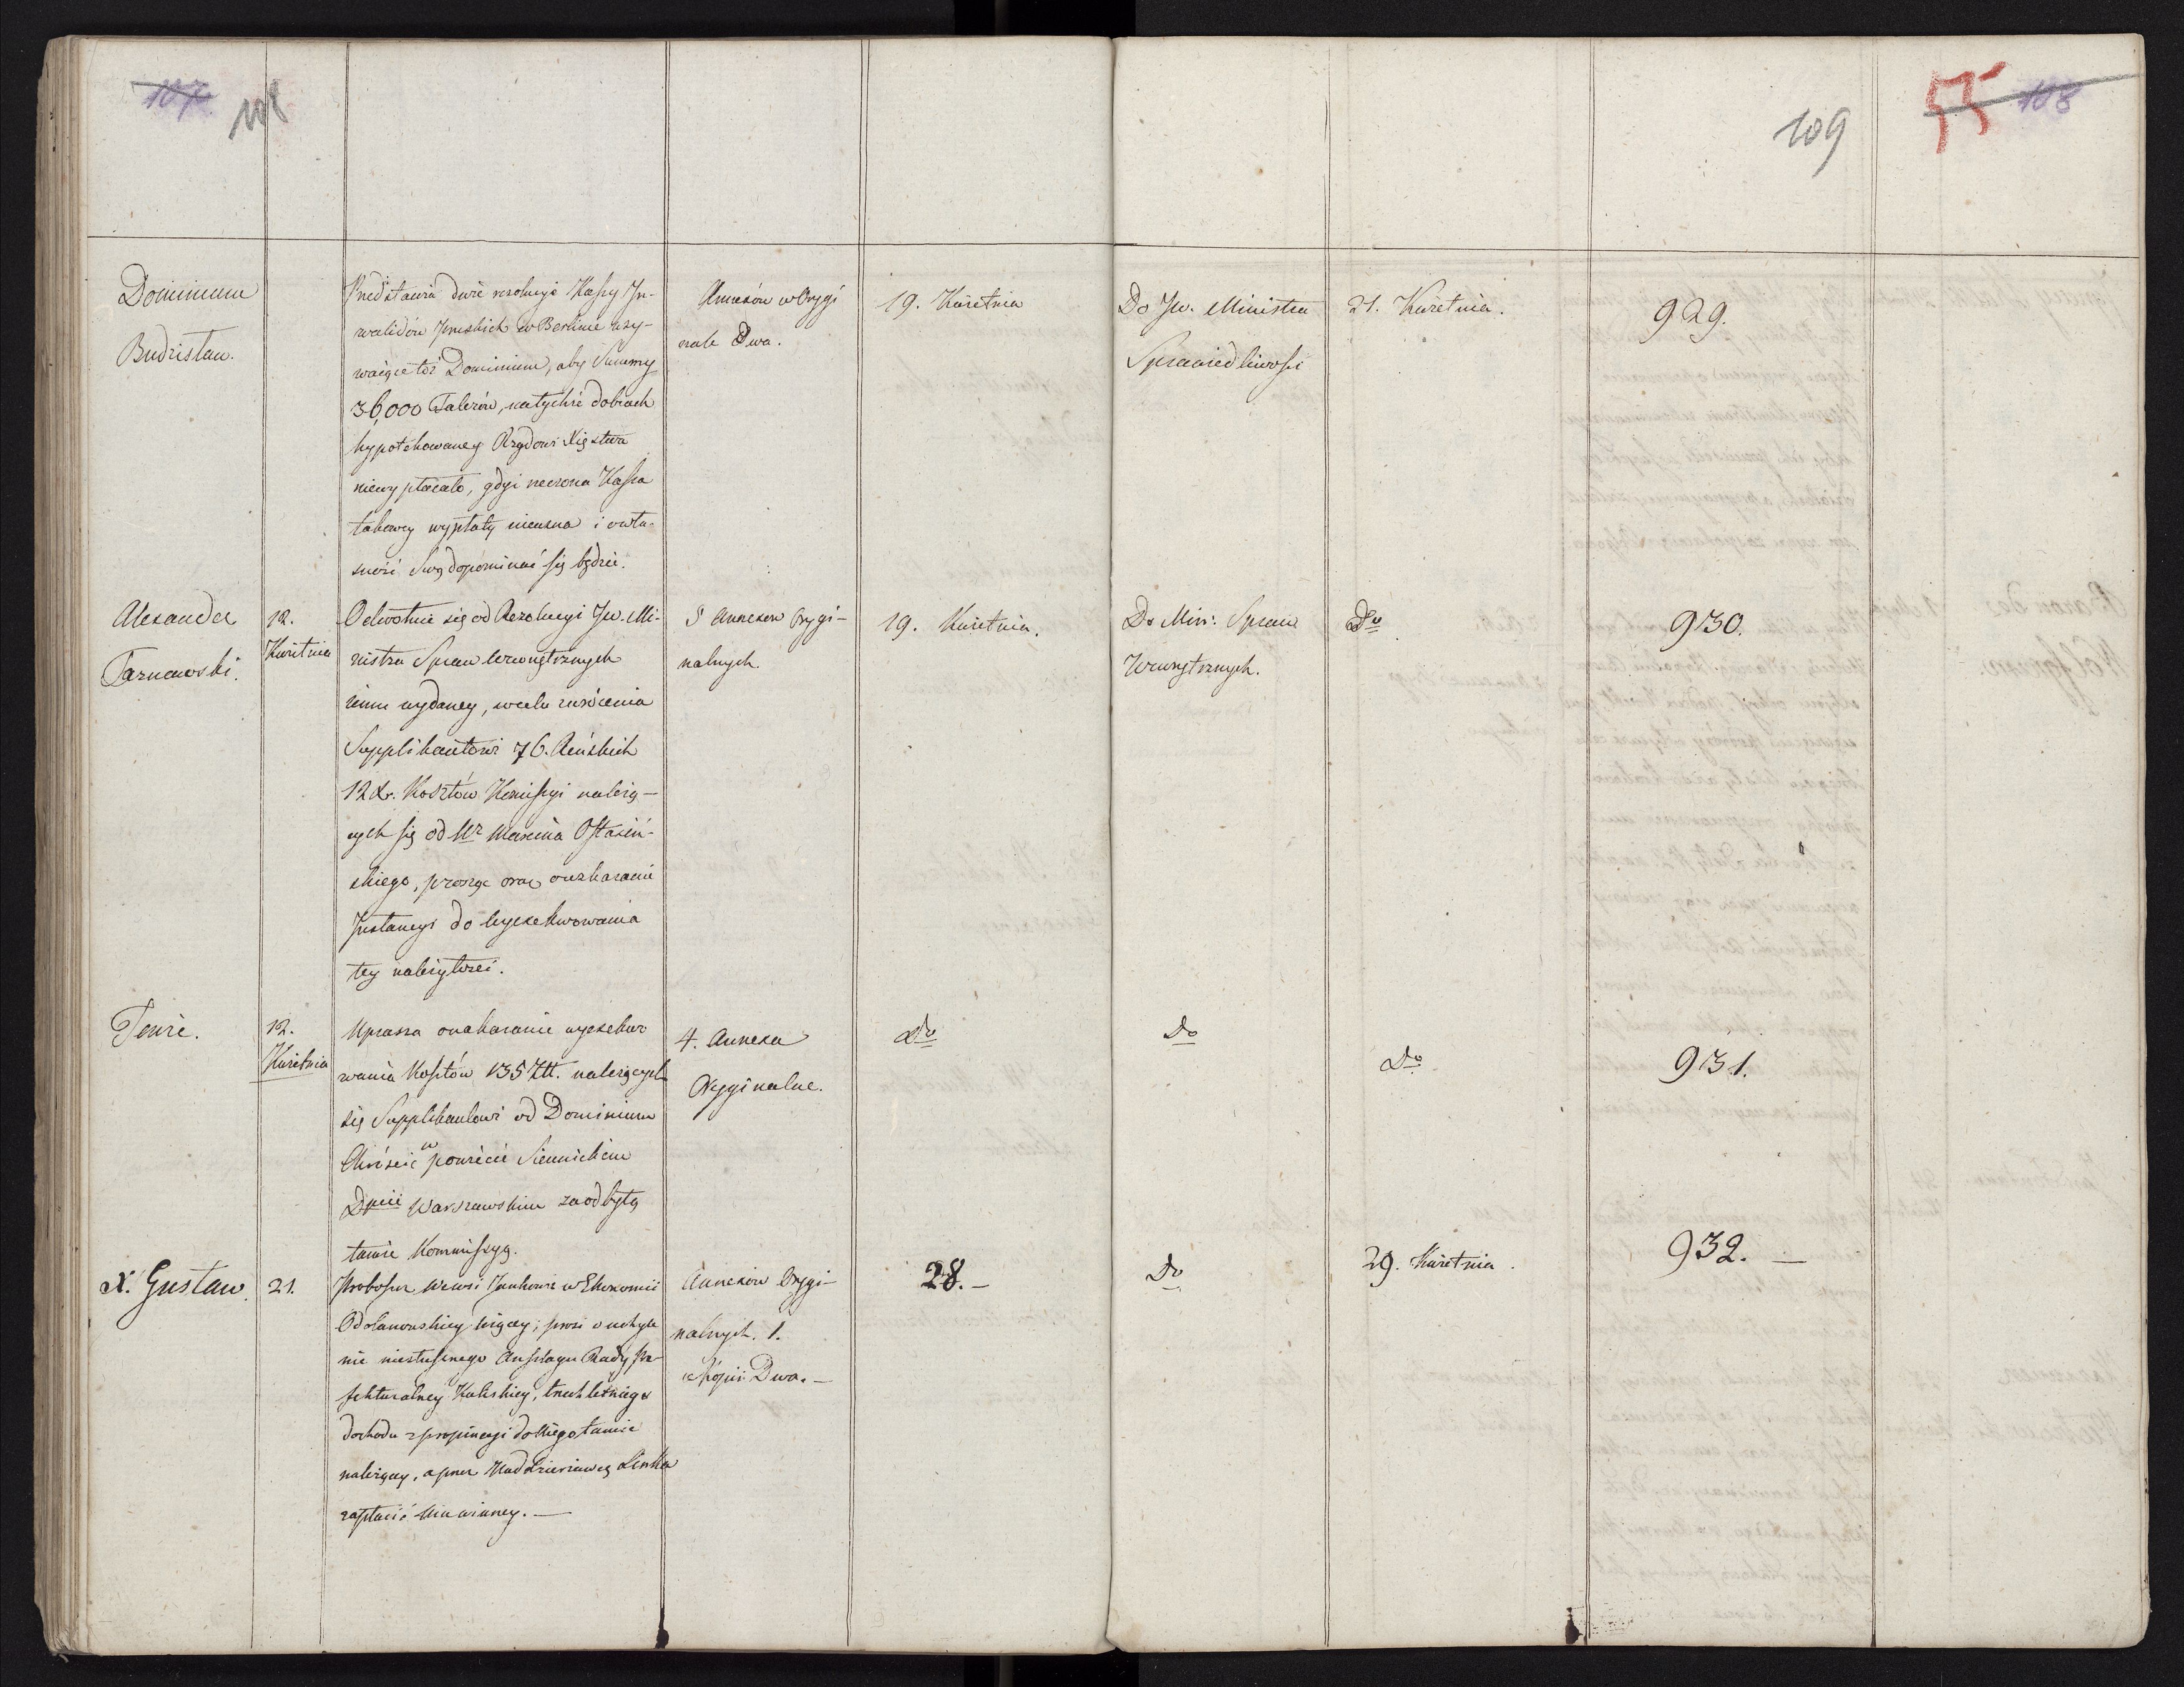 107 108
109 55 108
Dominium
Budzisław.
Przedstawia dwie rezolucje Kassy In-
walidów pruskich w Berlinie wzy-
waiące toż Dominium, aby Summy
36,000 Talerów, na tychże dobrach
hypotekowaney Rządowi Xięstwa
niewypłacało, gdyż rzeczona Kassa
takowey wypłaty nieuzna i o wła-
sność Swą dopominać się będzie.
Annexów w Orygi
nale Dwa.
19. Kwietnia
Do Jw. Ministra
Sprawiedliwości
21. Kwietnia.
929.
Alexander
Tarnawski.
12.
Kwietnia
Odwołuie się od Rezolucyi Jw. Mi-
nistra Spraw Wewnętrznych
iemu wydaney, wcelu
Supplikantowi 76. Reńskich
12 Xr. Kosztów Komissyi należą-
cych się od Wr Marcina Ostasiń-
skiego, prosząc oraz o nakazanie
Instancyi do wyexekwowania
tey należytości.
5 Annexow Orygi-
nalnych.
19. Kwietnia.
Do Min: Spraw
Wewnętrznych.
Do
930.
Tenże.
12.
Kwietnia
Uprasza o nakazanie wyexekwo
wania Kosztów 135 Złt. należących
się Supplikantowi od Dominium
w powiecie Siennickim
Dptcie Warszawskim za odbytą
tamże Kommissyą.
4. Annexa
Oryginalne.
Do
Do
Do
931.
X. Gustaw.
21.
Proboszcz we wsi Jankowie w Ekonomii
Odolanowskiey leżącey, prosi o uchyle
nie niesłusznego Rady Pre-
fekturalney Kaliskiey, trzechletniego
dochodu z propinacyi do niego tamże
należącey, a przez Naddzierżawcę Lenka
zapłacić mu winney. —
Annexów Orygi-
nalnych. 1.
i Kopii Dwa. —
28. —
Do
29. Kwietnia.
932. —